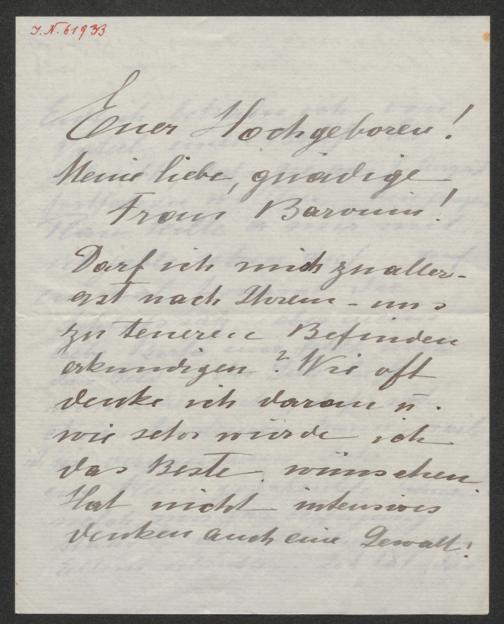 J.N. 61933
Euer Hochgeboren!
Meine liebe, gnädige
Frau Baronin!
Darf ich mich zualler-
erst nach Ihrem - uns
zu teueren Befinden
erkundigen? Wie oft
denke ich daran u.
wie sehr würde ich
das Beste wünschen.
Hat nicht intensives
denken auch eine Gewalt!